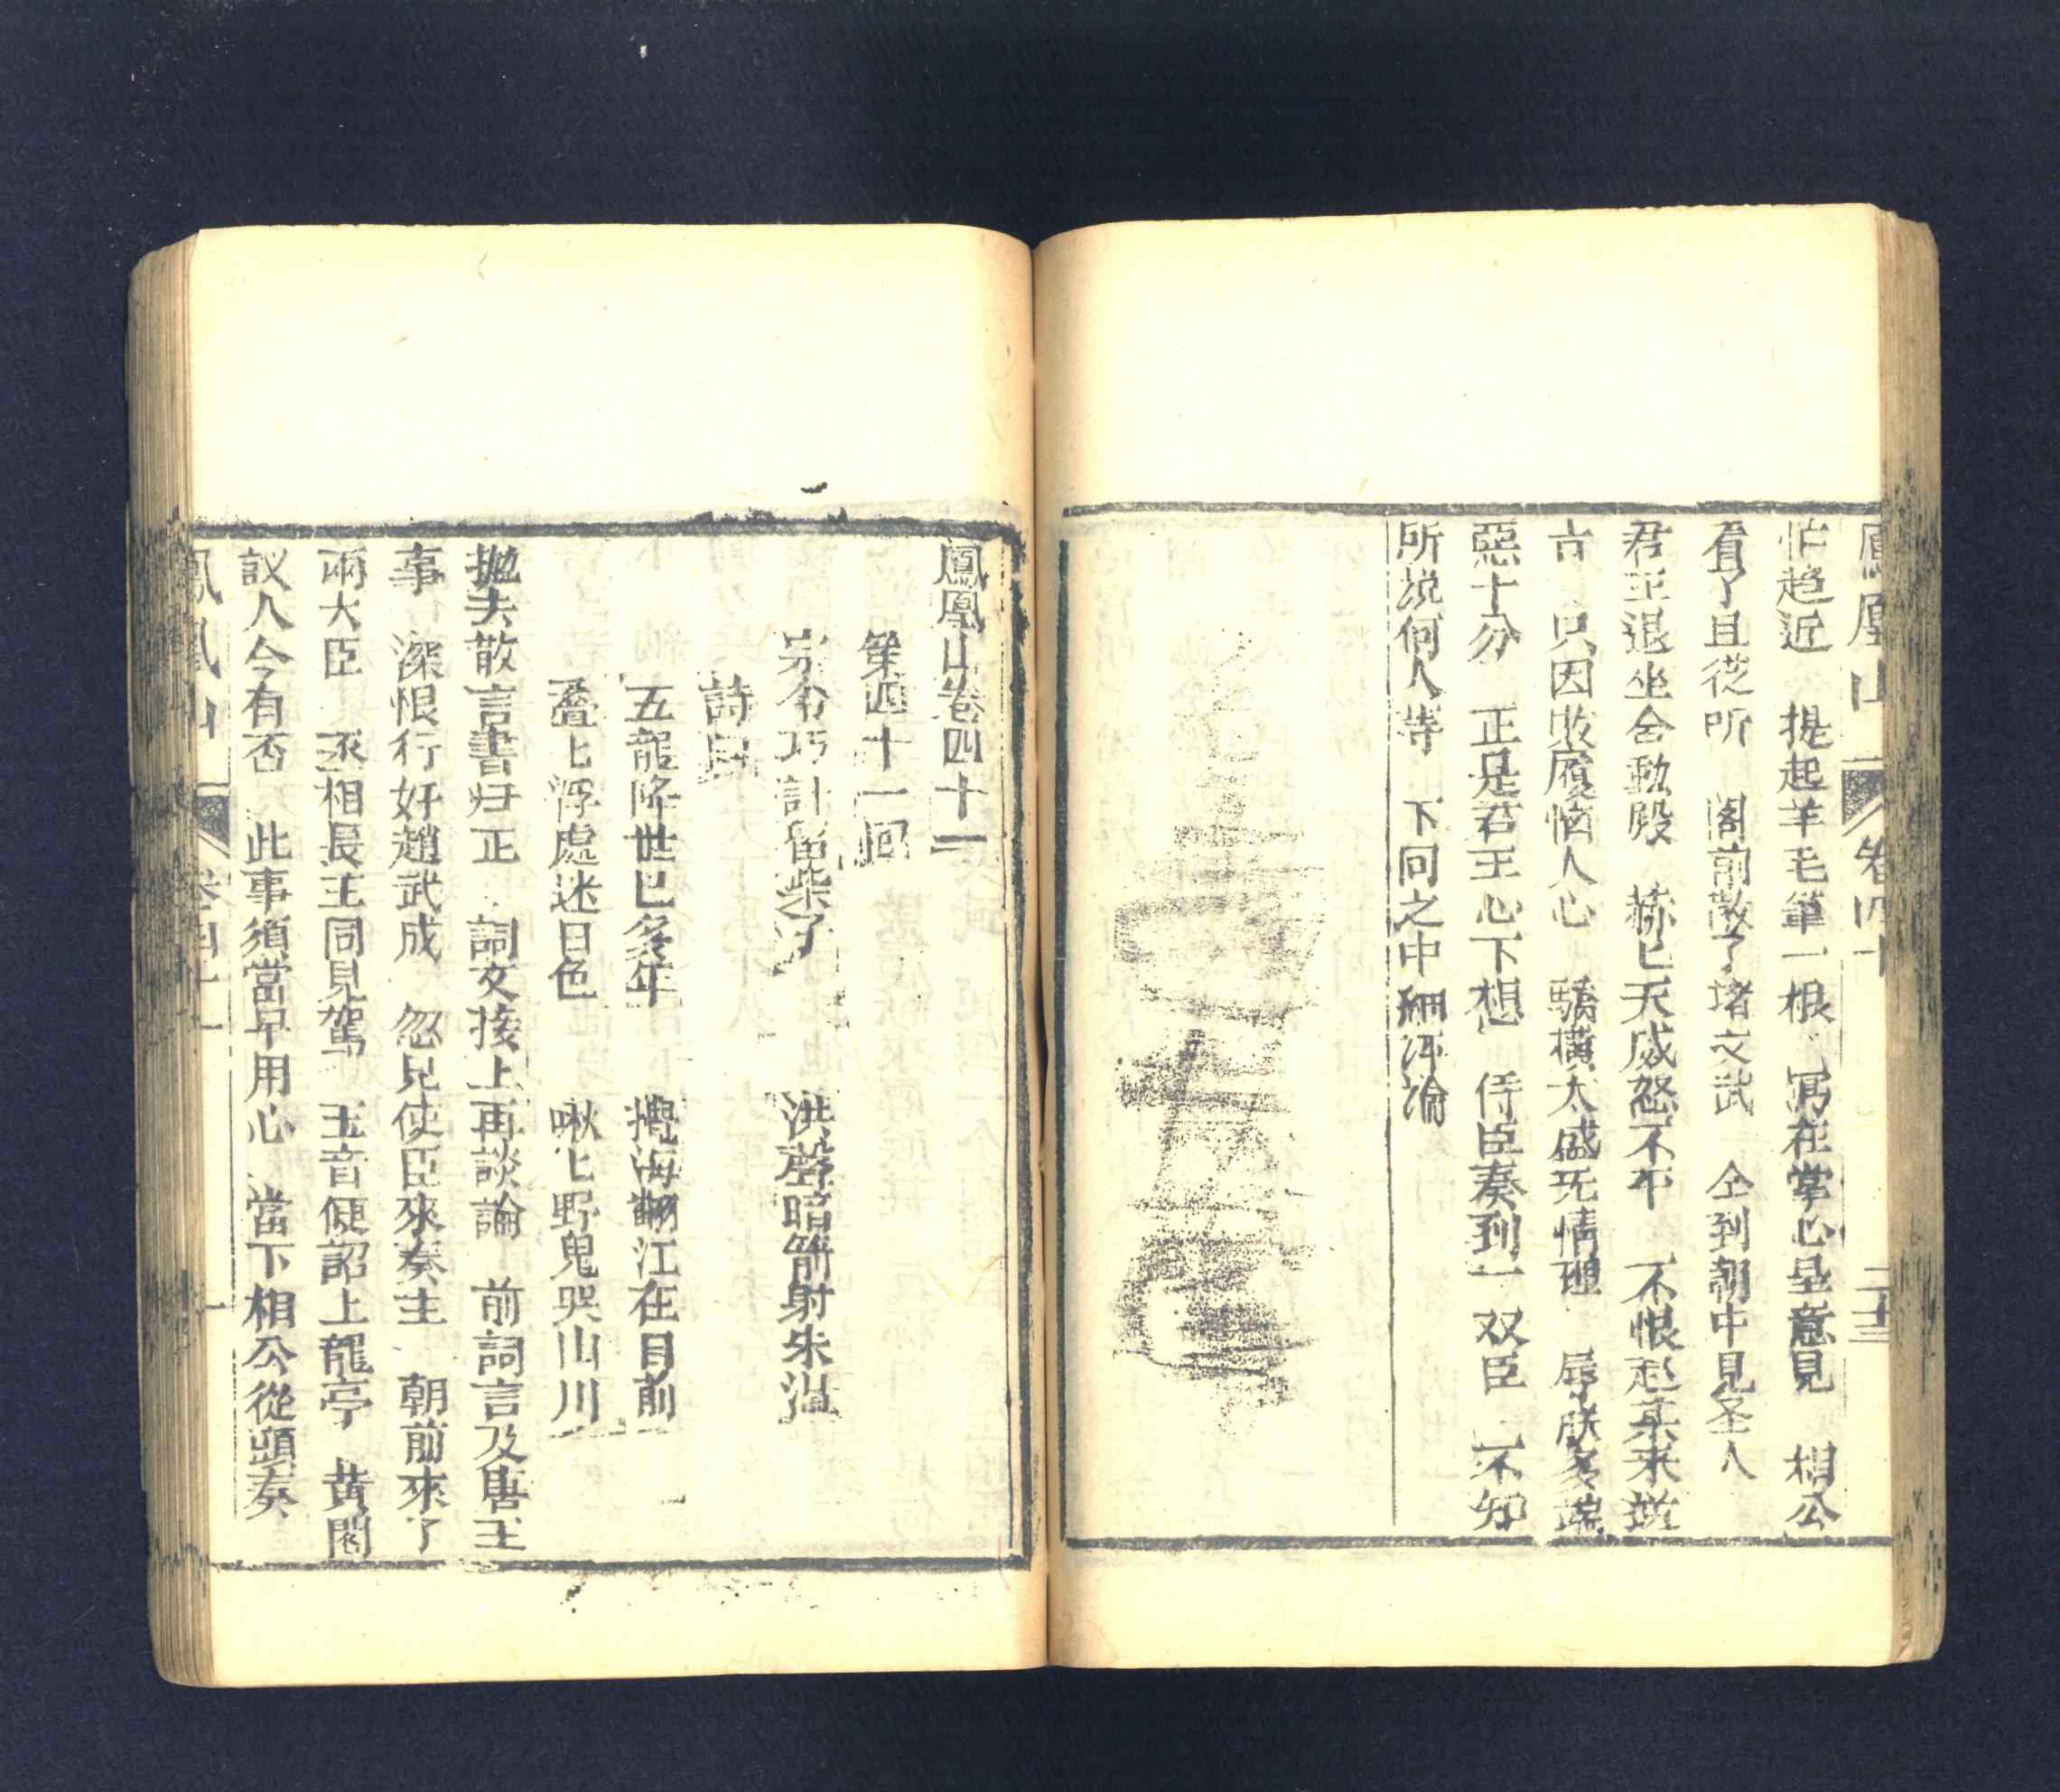 鳳凰山 卷四十 二十三
忙趋近 提起羊毛筆一根 寫在掌心呈意見 相公
看了且從所 閣前散了堵文武 仝到朝中見圣人
君王退坐舍動殿 赫匕天威怒不平 不恨赵
古 只因敗履惱人心 驕橫太盛无情理 辱朕多端
惡十分 正是君王心下想 侍臣奏到一双臣 不知
所説何人等 下回之中細評論
鳳凰山卷四十一
第四十一回
宗令巧計留柴子 洪聲暗箭射朱温
詩曰
五龍降世已多年 攪海翻江在目前
叠匕浮處迷日色 啾匕野鬼哭山川
抛去散言書归正 詞文接上再談論 前詞言及唐王
事 深恨行奸趙武成 忽見使臣來奏主 朝前來了
兩大臣 丞相長王同見駕 玉音便詔上龍亭 黄閣
議人今有否 此事須當早用心 當下相公從頭奏
鳳凰山 卷四十一 一